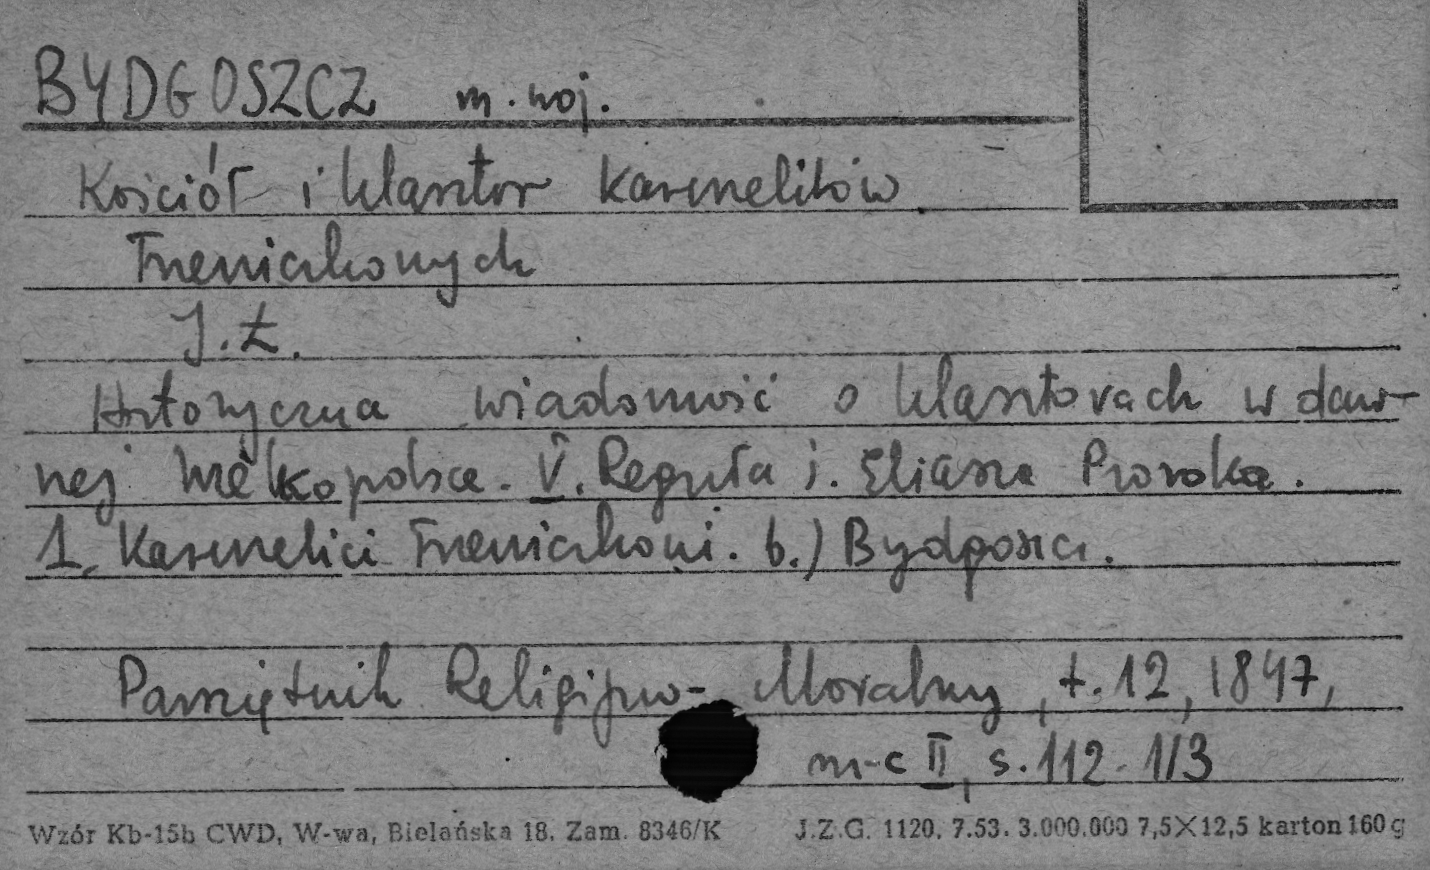 BYDGOSZCZ m. woj.
Kościół i klasztor karmelitów
Trzewiczkowych
J. Ł.
Historyczna wiadomość o klasztorach w daw-
nej Wielkopolsce. V. Reguła ś. Eliasza Proroka.
1. Karmelici Trzewiczkowi. b.) Bydgoszcz.
Pamiętnik Religijno-Moralny, t. 12, 1847,
m-c II, s. 112-113
Wzór Kb-15b CWD, W-wa, Bielańska 18. Zam. 8346/K J.Z.G. 1120. 7.53. 3.000.000 7,5×12,5 karton 160 g